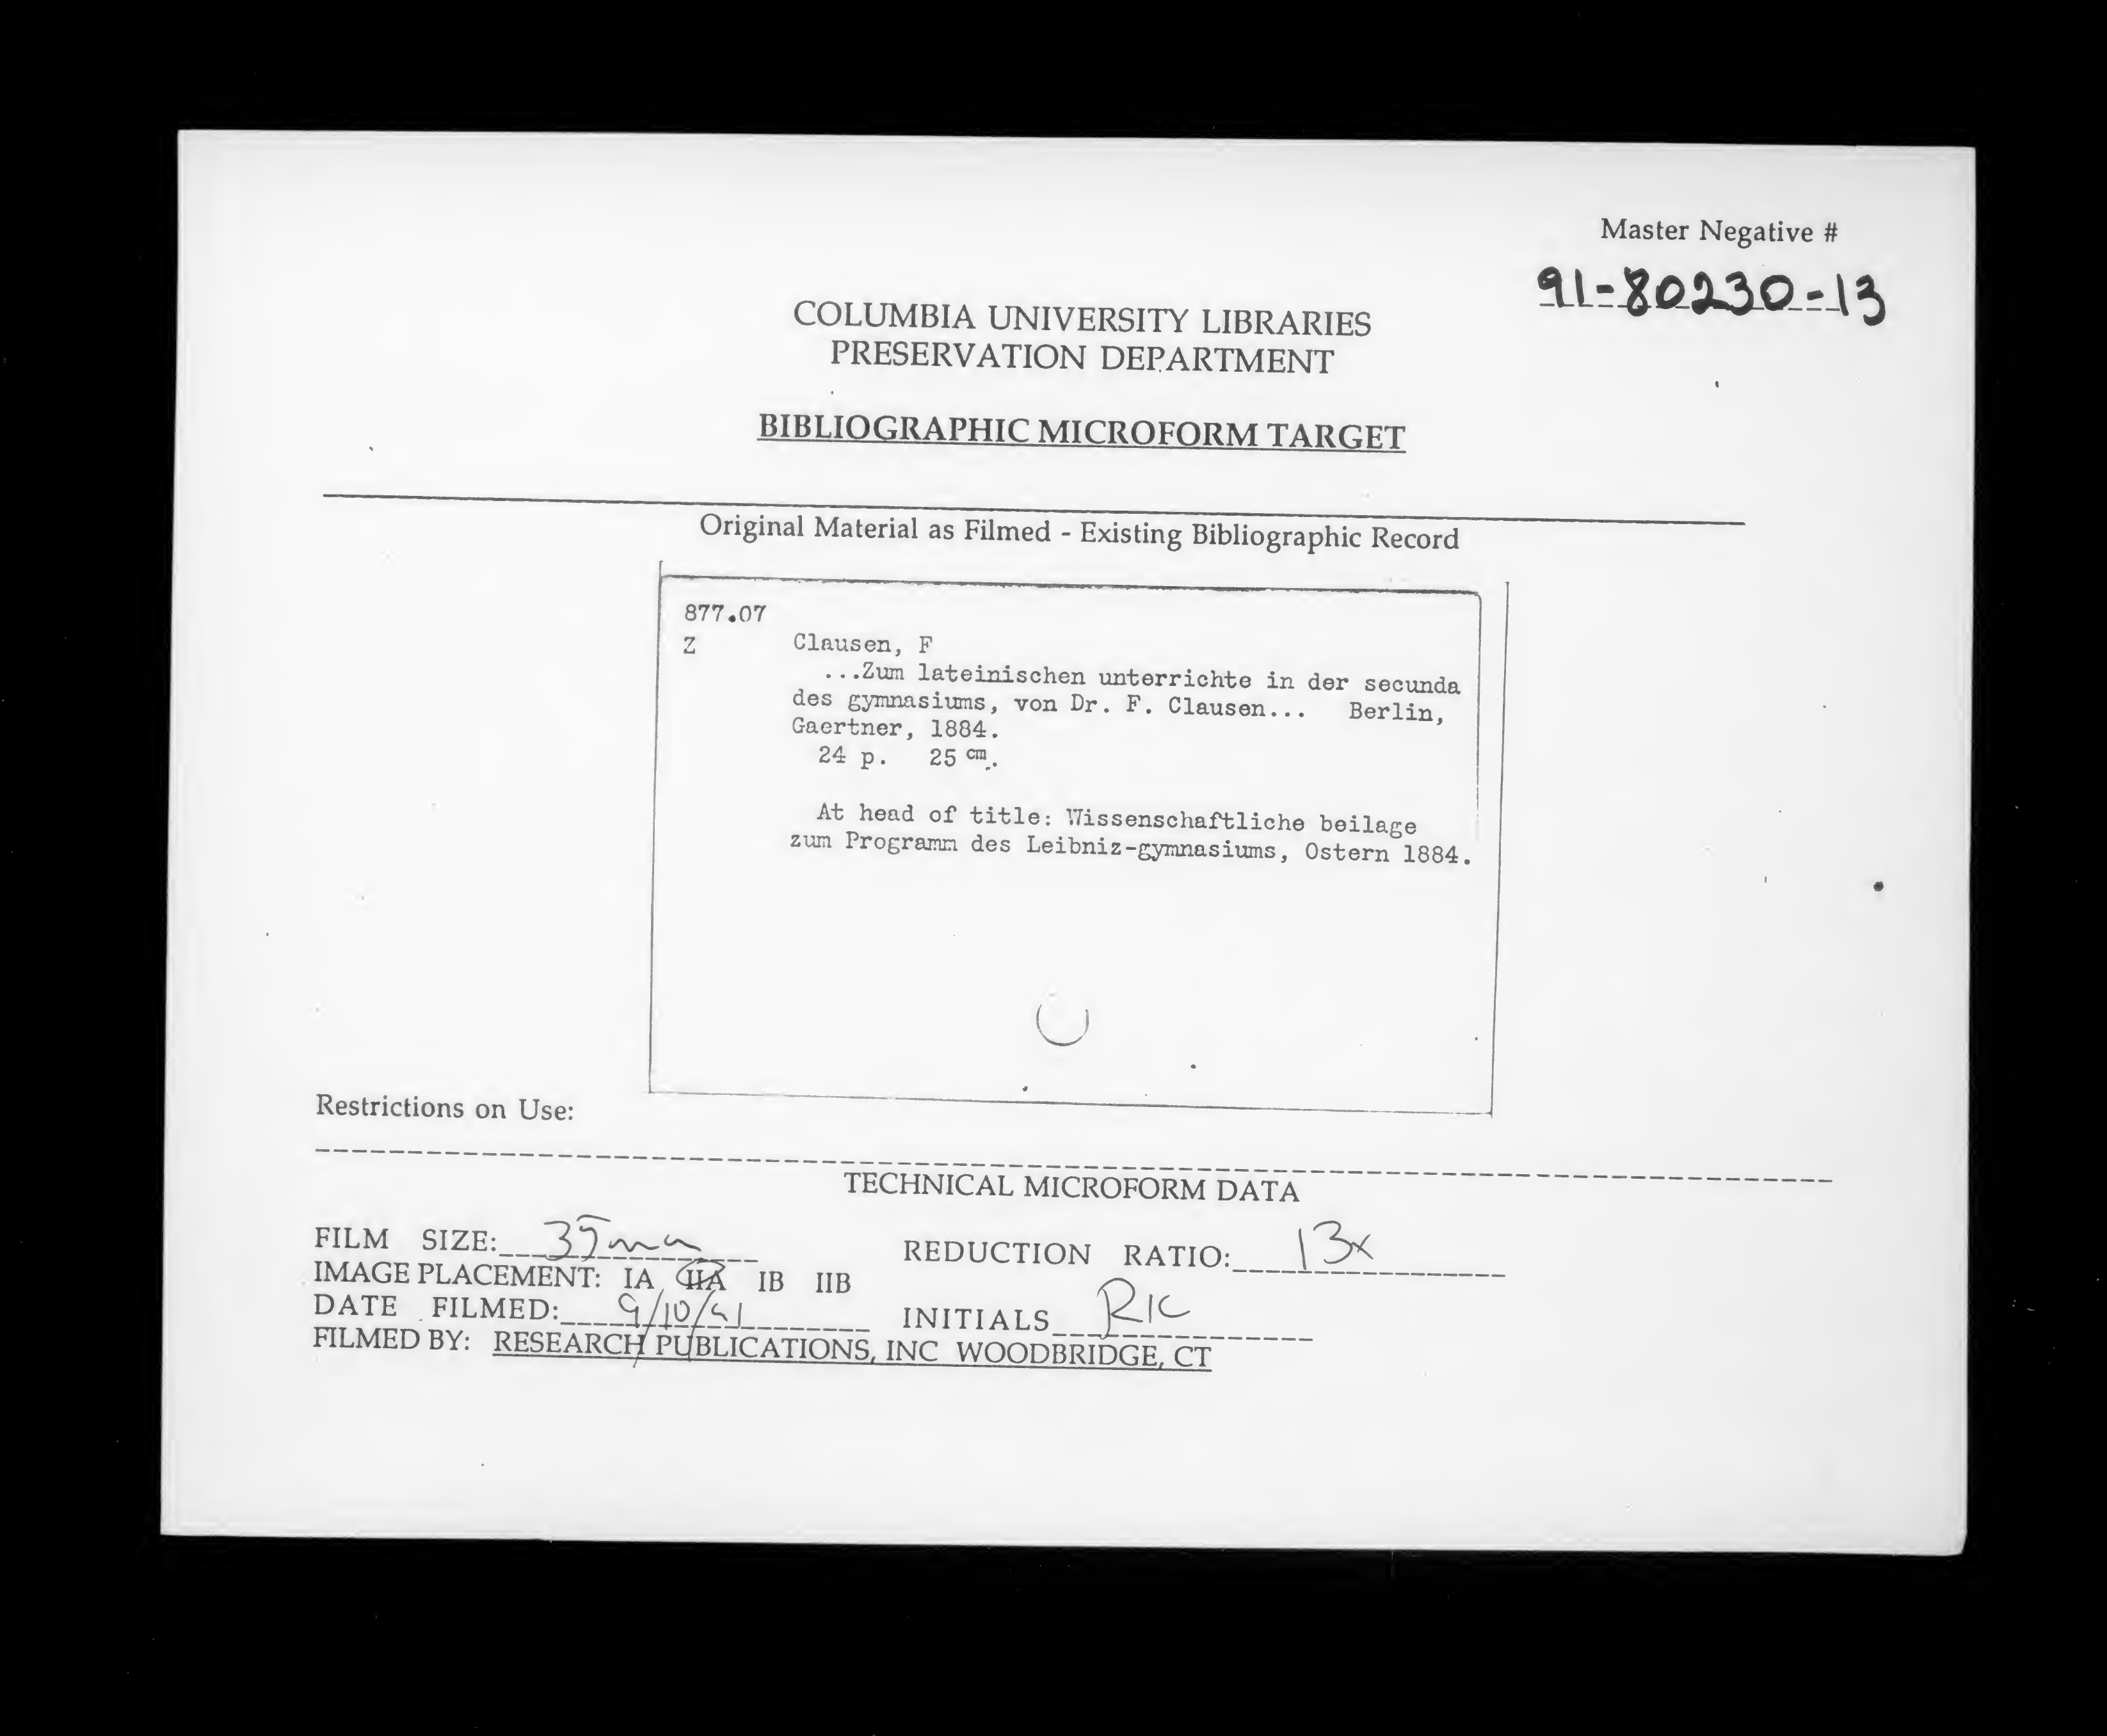 Master Negative #
91-80230-13
COLUMBIA UNIVERSITY LIBRARIES
PRESERVATION DEPARTMENT
BIBLIOGRAPHIC MICROFORM TARGET
Original Material as Filmed - Existing Bibliographic Record
877.07
Z Clausen, F
...Zum lateinischen unterrichte in der secunda
des gymnasiums, von Dr. F. Clausen... Berlin,
Gaertner, 1884.
24 p. 25 cm.
At head of title: Wissenschaftliche beilage
zum Programm des Leibniz-gymnasiums, Ostern 1884.
Restrictions on Use:
TECHNICAL MICROFORM DATA
FILM SIZE: 35mm REDUCTION RATIO: 13x
IMAGE PLACEMENT: IA IIA IB IIB
DATE FILMED: 9/10/91 INITIALS
FILMED BY: RESEARCH PUBLICATIONS, INC WOODBRIDGE, CT